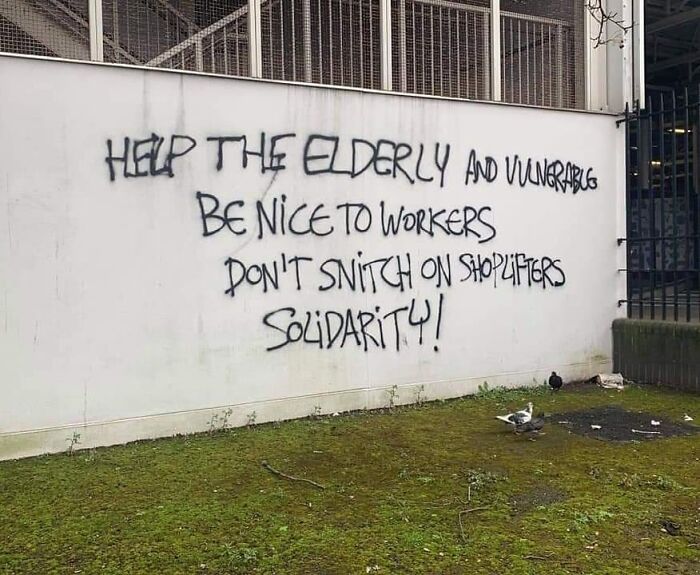 HELP THE ELDERLY AND VULNERABLE
BE NICE TO WORKERS
DON'T SNITCH ON SHOPLIFTERS
SOLIDARITY!